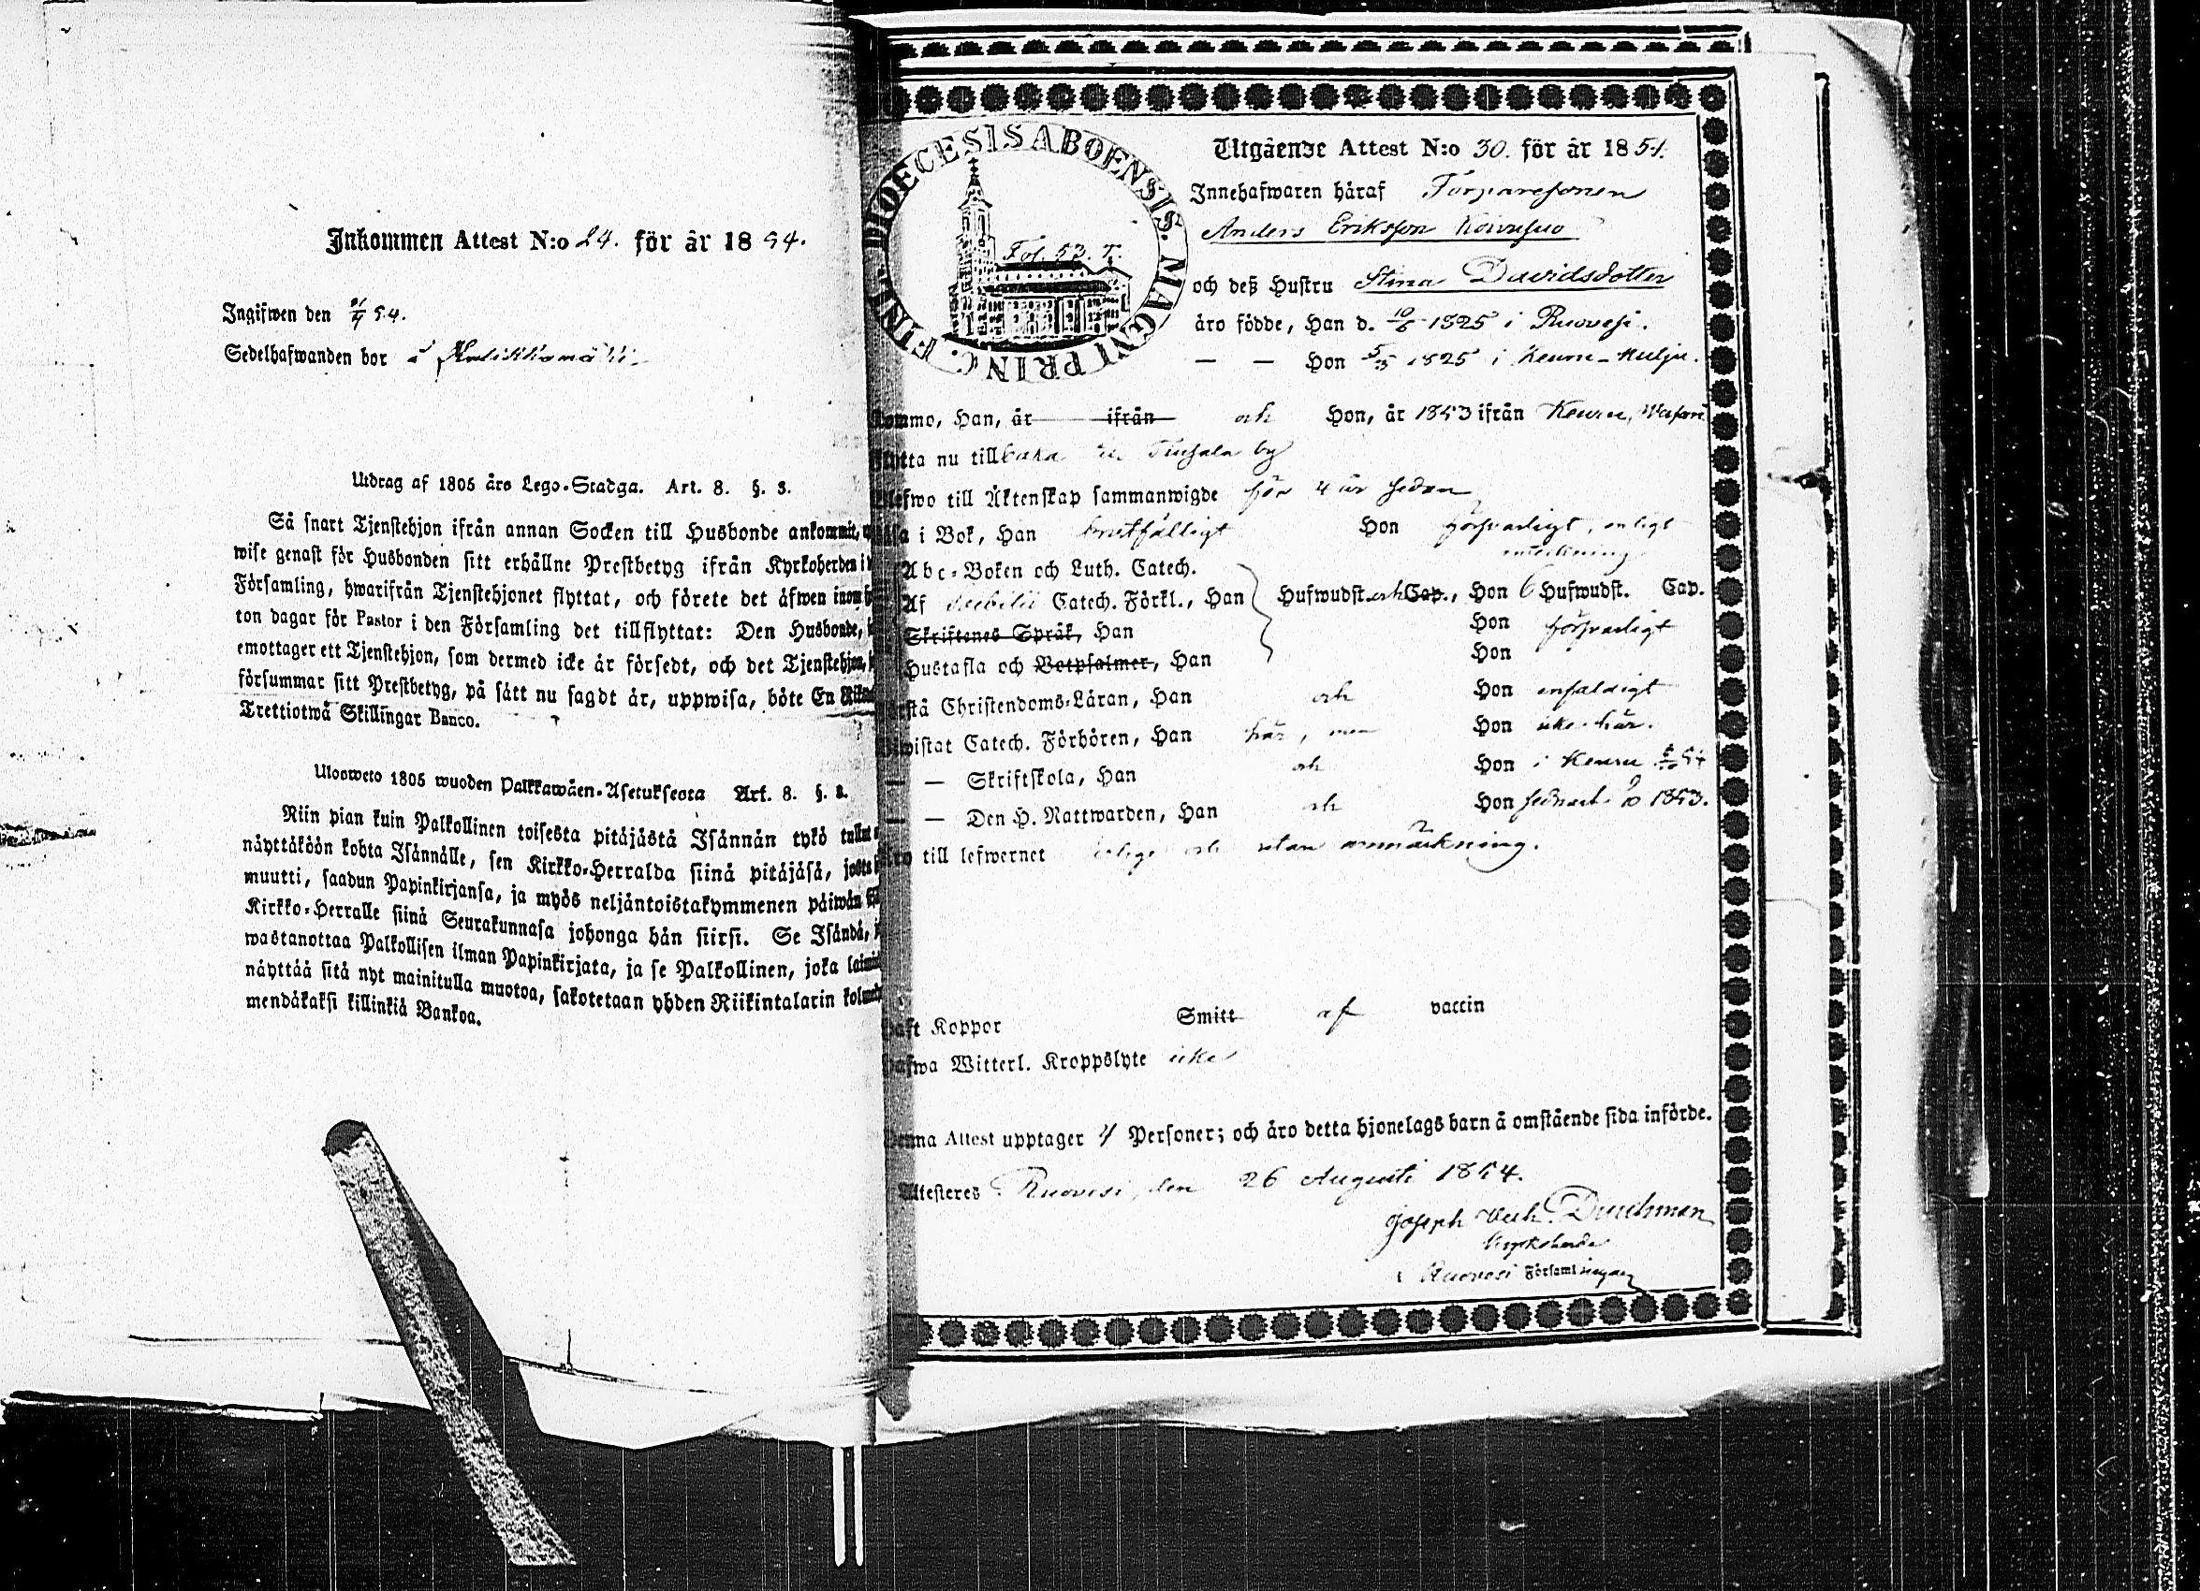 Inkommen Attest N:o 24. för år 1854.
Ingifwen den 54.
Sedelhafwanden bor å
Utdrag af 1805 års Lego-Stadga. Art. 8. §. 3.
Så snart Tjenstehjon ifrån annan Socken till Husbonde ankommit,
wise genast för Husbonden sitt erhållne Prestbetyg ifrån Kyrkoherden i
Församling, hwarifrån Tjenstehjonet flyttat, och förete det äfwen inom
ton dagar för Pastor i den Församling det tillflyttat: Den Husbonde,
emottager ett Tjenstehjon, som dermed icke är försedt, och det Tjenstehjon,
försummar sitt Prestbetyg, på sätt nu sagdt är, uppwisa, böte En
Trettiotwå Skillingar Banco.
Ulosweto 1805 wuoden Palkkawäen-Asetuksesta Art. 8. §. 3.
Niin pian kuin Palkollinen toisesta pitäjästä Isännän tykö tullut
näyttäköön kohta Isännälle, sen Kirkko-Herralda siinä pitäjäsä, josta
muutti, saadun Papinkirjansa, ja myös neljäntoistakymmenen päiwän
Kirkko-Herralle siinä Seurakunnasa johonga hän siirsi. Se Isändä,
wastanottaa Palkollisen ilman Papinkirjata, ja se Palkollinen, joka
näyttää sitä nyt mainitulla muotoa, sakotetaan yhden Riikintalarin
mendäkaksi killinkiä Bankoa.
DIOECESIS ABOENSIS. MAGNI PRINC. FINL.
Fol. 53. T.
Utgående Attest N:o 30. för år 1854.
Innehafwaren häraf Torparesonen
Anders Eriksson Koivusuo
och deß Hustru Stina Davidsdotter
äro födde, Han d. 1825 i Ruovesi.
— — Hon 5/5 1825 i Keuru-Multja.
Kommo, Han, år ifrån och Hon, år 1853 ifrån Keuru,
Flytta nu tillbaka by
Blefwo till Äktenskap sammanwigde för 4 år sedan
Läsa i Bok, Han Hon försvarligt, enligt
Abc-Boken och Luth. Catech.
Af Catech. Förkl., Han Hufwudst. och Cap., Hon 6 Hufwudst. Cap.
Skriftenes Språk, Han Hon försvarligt
Hustafla och Botpsalmer, Han Hon
Förstå Christendoms-Läran, Han och Hon enfaldigt
Bewistat Catech. Förhören, Han här, men Hon icke här.
— — Skriftskola, Han och Hon i Keuru 54
— — Den H. Nattwarden, Han och Hon sednast 1853.
Äro till lefwernet ärlige och utan anmärkning.
Haft Koppor Smitt af vaccin
Hafwa Witterl. Kroppslyte icke
Denna Attest upptager 4 Personer; och äro detta hjonelags barn å omstående sida införde.
Attesteres Ruovesi, den 26 Augusti 1854.
Joseph Wilh. Durchman
Kyrkoherde
i Ruovesi Församlingar